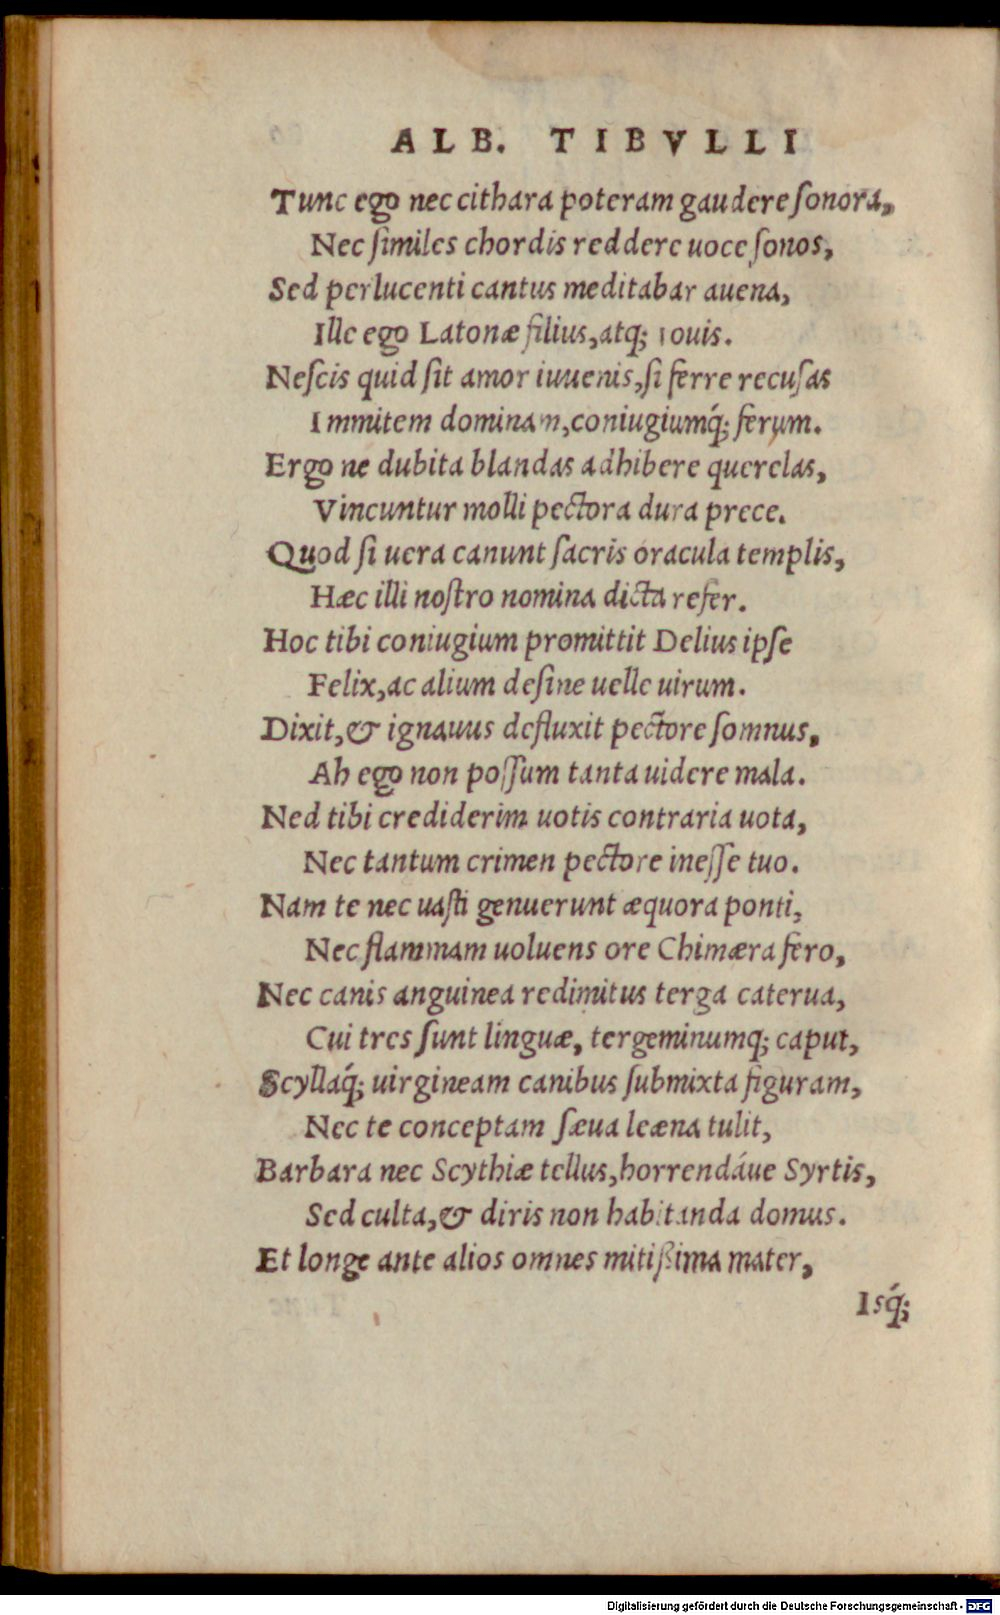 ALB. TIBVLLI
Tunc ego nec cithara poteram gaudere ſonora,
Nec ſimiles chordis reddere uoce ſonos,
Sed perlucenti cantus meditabar auena,
Ille ego Latonæ filius, atq; Iouis.
Neſcis quid ſit amor iuuenis, ſi ferre recuſas
Immitem dominam, coniugiumq́; ferum.
Ergo ne dubita blandas adhibere querelas,
Vincuntur molli pectora dura prece.
Quod ſi uera canunt ſacris oracula templis,
Hæc illi noſtro nomina dicta refer.
Hoc tibi coniugium promittit Delius ipſe
Felix, ac alium deſine uelle uirum.
Dixit, & ignauus defluxit pectore ſomnus,
Ah ego non poſſum tanta uidere mala.
Ned tibi crediderim uotis contraria uota,
Nec tantum crimen pectore ineſſe tuo.
Nam te nec uaſti genuerunt æquora ponti,
Nec flammam uoluens ore Chimæra fero,
Nec canis anguinea redimitus terga caterua,
Cui tres ſunt linguæ, tergeminumq; caput,
Scyllaq́; uirgineam canibus ſubmixta figuram,
Nec te conceptam ſæua leæna tulit,
Barbara nec Scythiæ tellus, horrendáue Syrtis,
Sed culta, & diris non habitanda domus.
Et longe ante alios omnes mitißima mater,
Isq́;
Digitalisierung gefördert durch die Deutsche Forschungsgemeinschaft - DFG